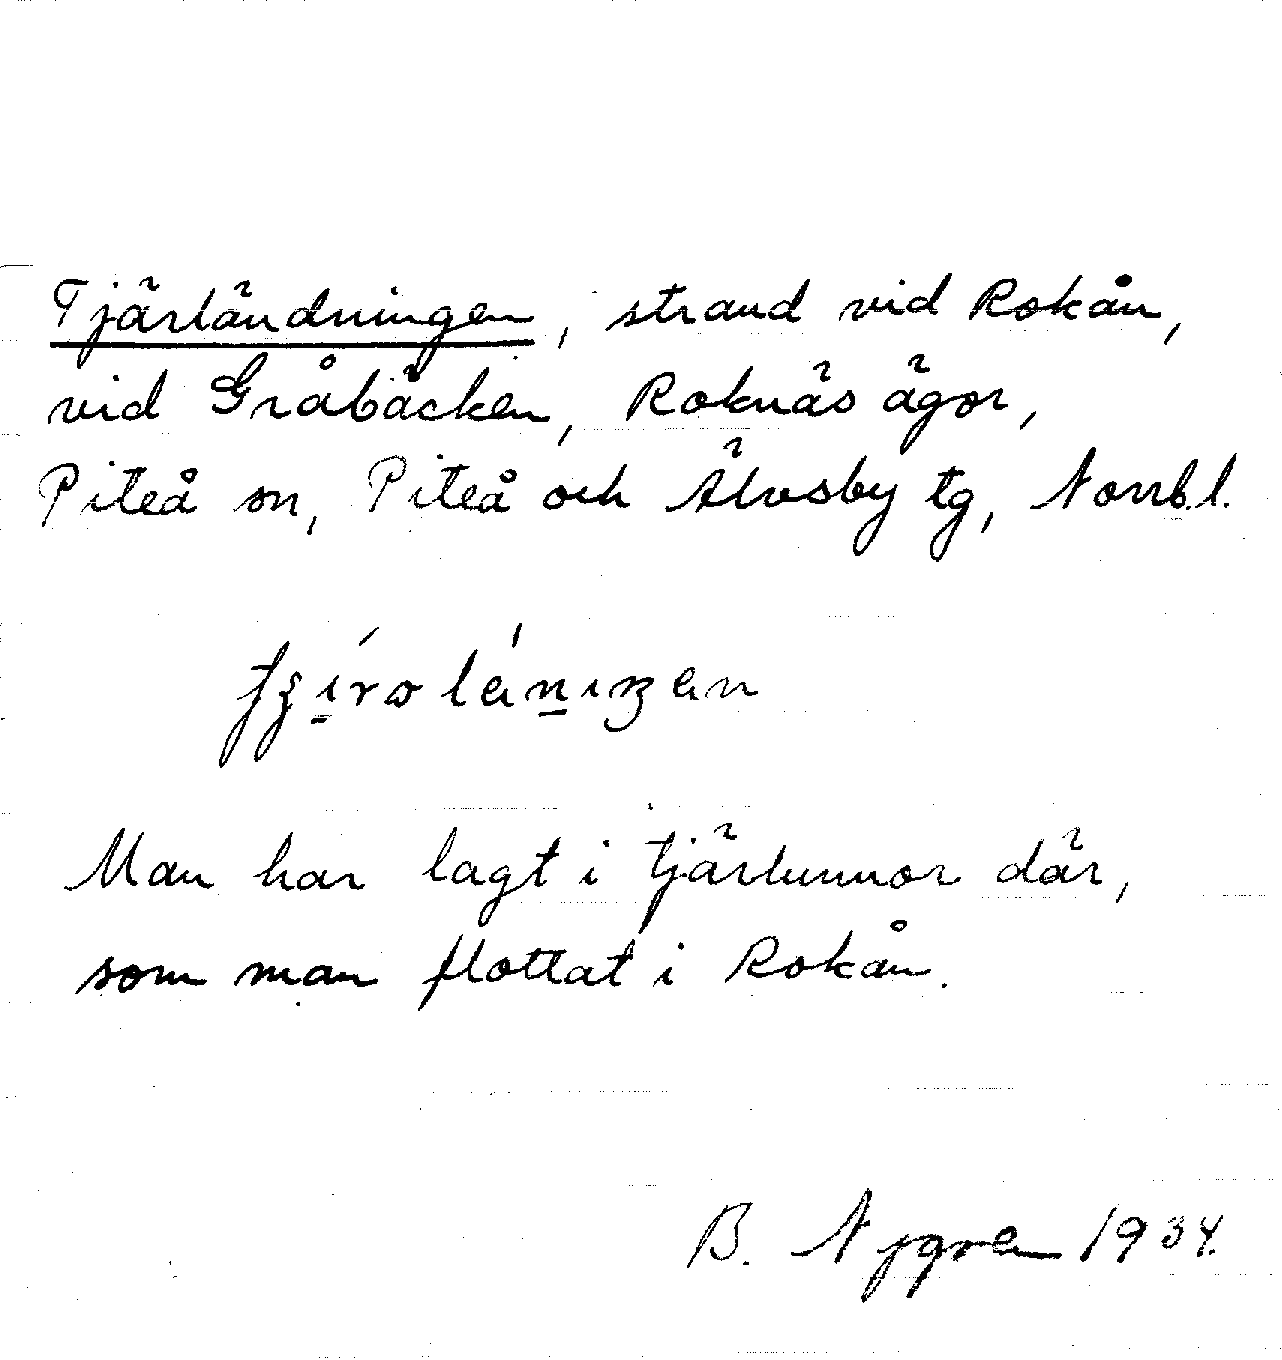 Tjärländningen, strand vid Rokån,
vid Gråbäcken, Roknäs ägor,
Piteå sn, Piteå och Älvsby tg, Norrb.l.
Man har lagt i tjärtunnor där,
som man flottat i Rokån.
B. Nygren 1934.